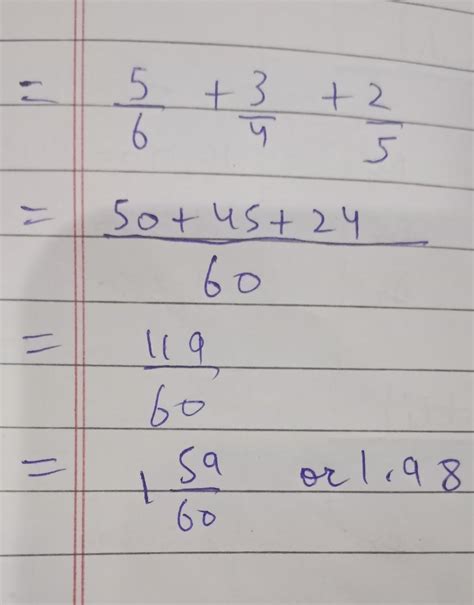 = 5/6 + 3/4 + 2/5
= 50+45+24/60
= 119/60
= 1 59/60 or 1.98